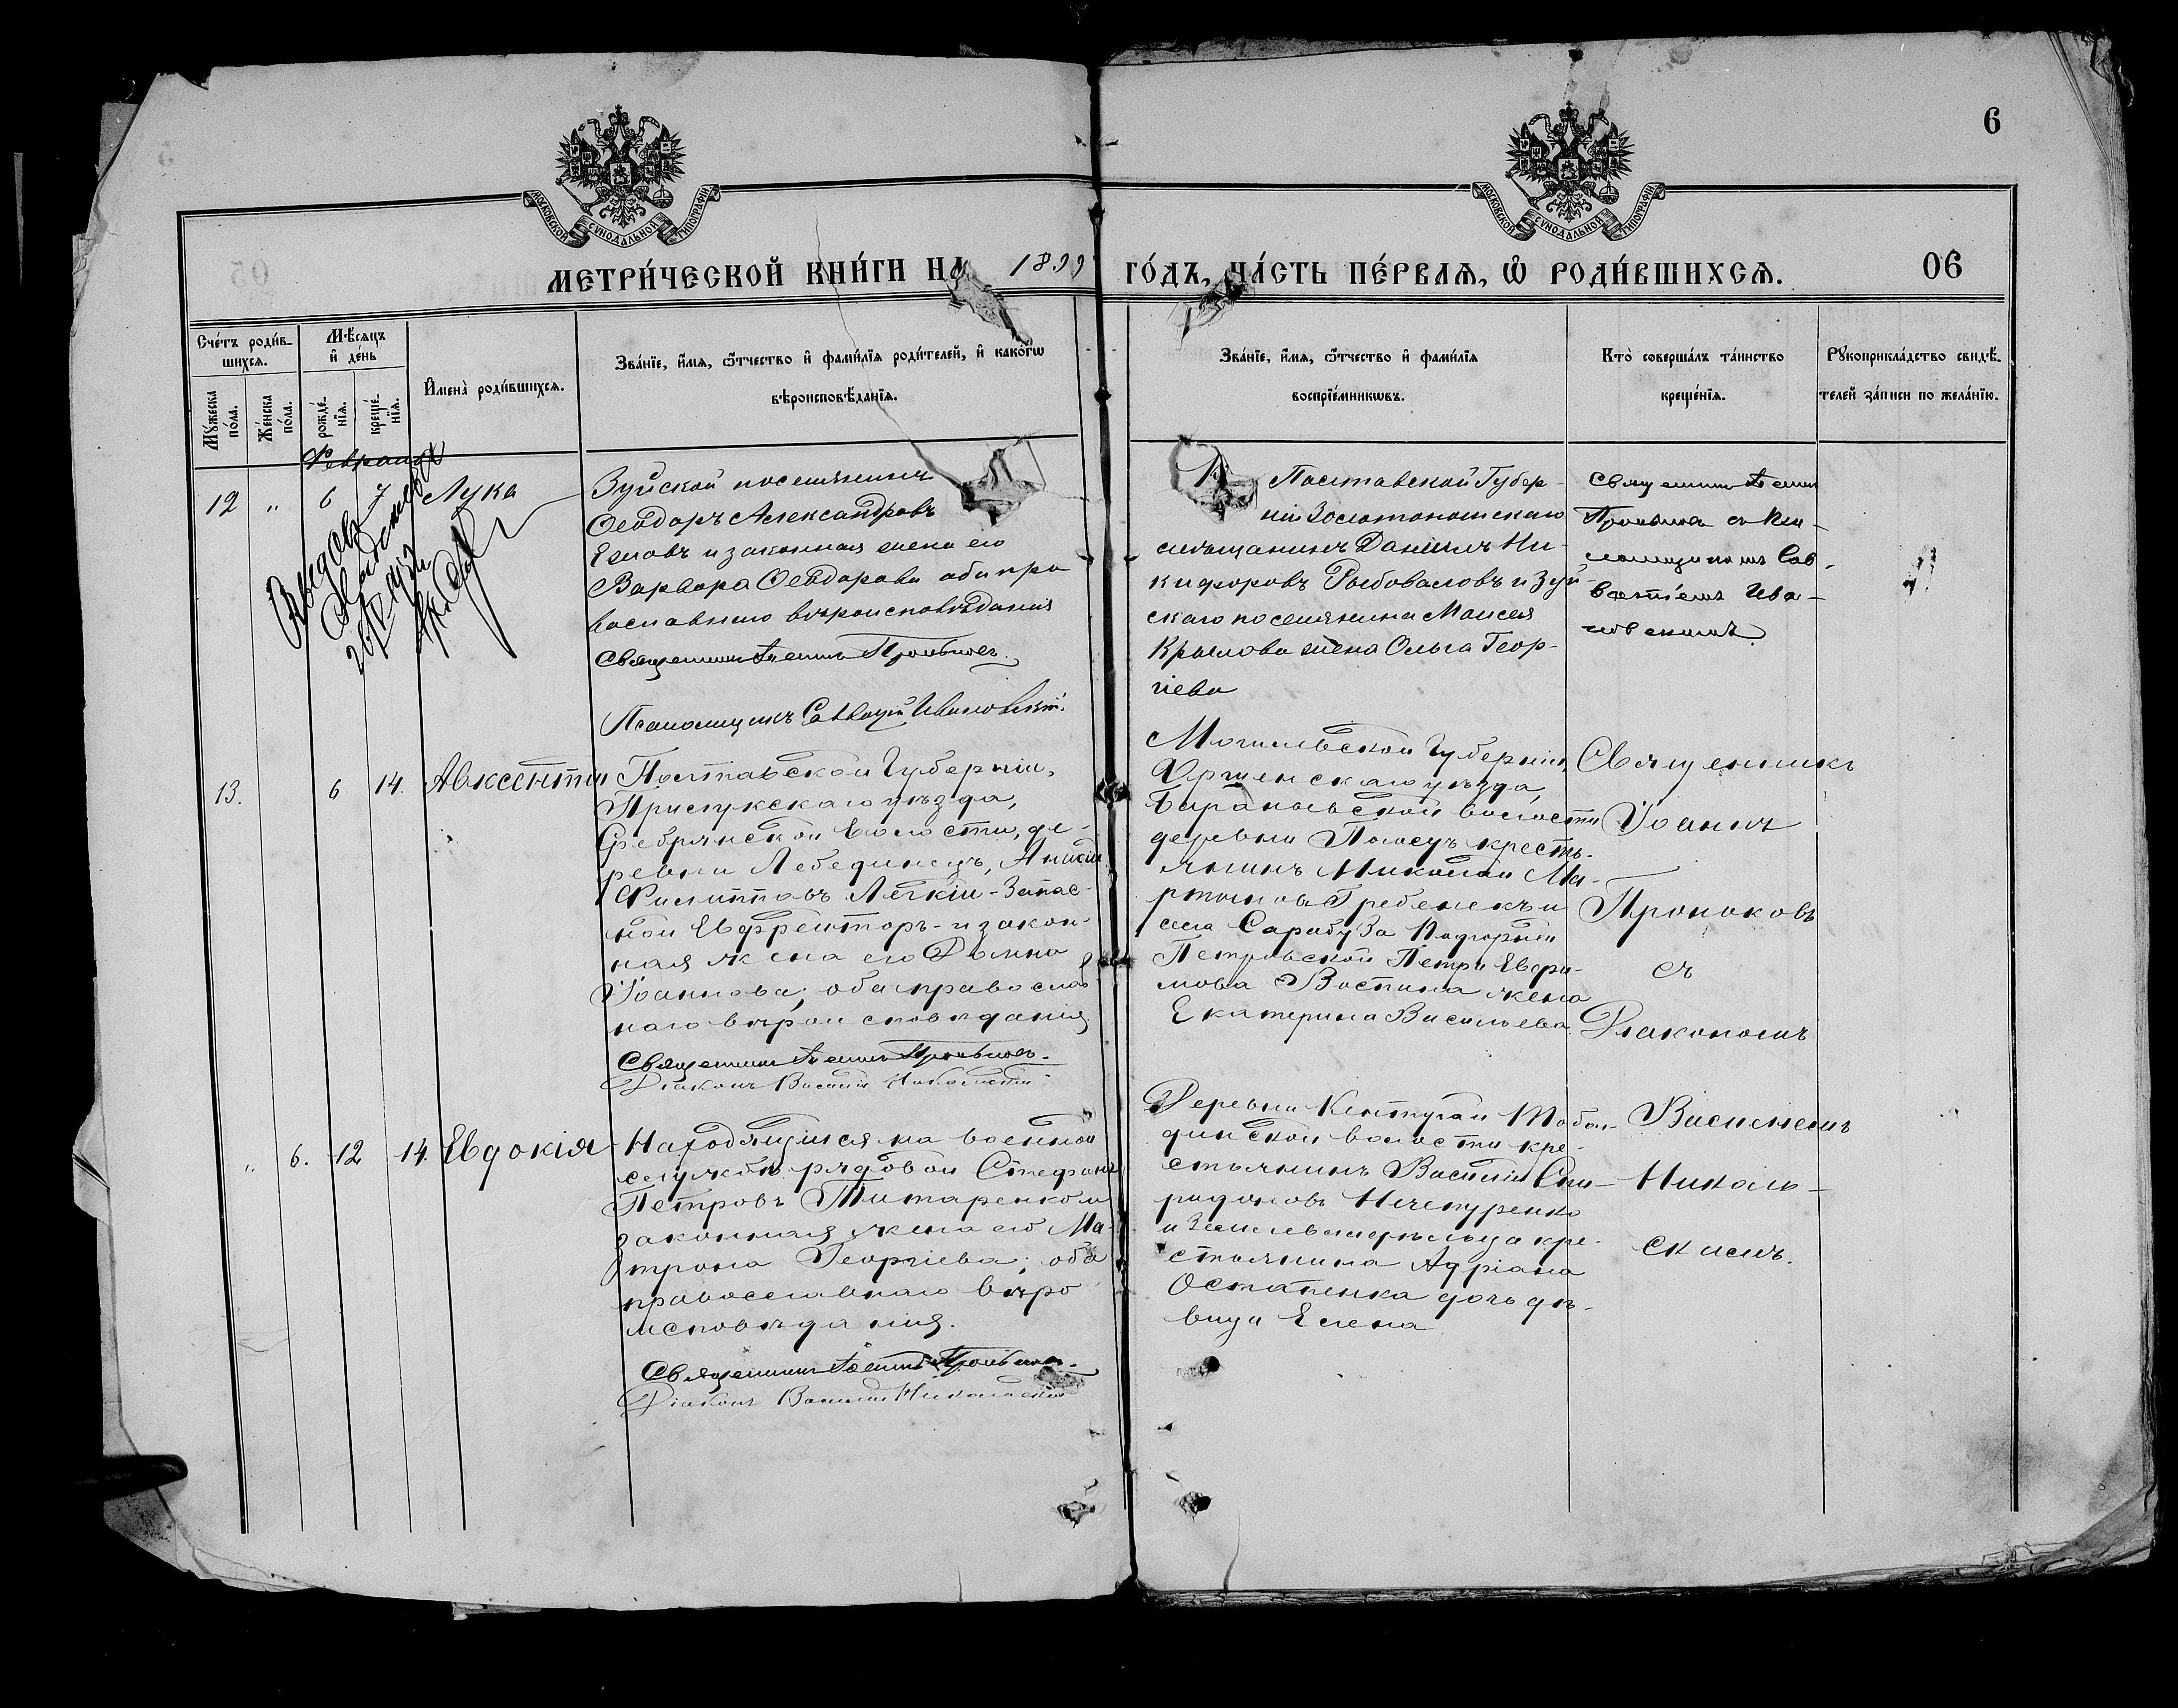 6
МОСКОВСКОЙ СУНОДАЛЬНОЙ ТИПОГРАФІИ
МОСКОВСКОЙ СУНОДАЛЬНОЙ ТИПОГРАФІИ
МЕТРИ́ЧЕСКОЙ КНИ́ГИ НА 1899 ГО́ДЪ, ЧА́СТЬ ПЕ́РВАЯ, Ѿ РОДИ́ВШИХСЯ.
06
Сче́тъ роди́в-
шихся.
Мѣ́сяцъ
и҆ де́нь
Му́жеска
по́ла.
Же́нска
по́ла.
рожде́-
нїя.
креще́-
нїя.
И҆мена̀ роди́вшихся.
Зва́нїе, и҆́мя, ѻ҆́тчество и҆ фами́лїя роди́телей, и҆ како́гѡ
вѣроисповѣ́данїя.
Зва́нїе, и҆́мя, ѻ҆́тчество и҆ фами́лїя
воспрїе́мникѡвъ.
Кто̀ соверша́лъ та́инство
креще́нїя.
Рукоприкла́дство свидѣ́-
телей за́писи по жела́нїю.
Февраль
12 " 6 7 Лука
Зуйской поселянинъ
Ѳеодоръ Александровъ
и законная жена его
Варвара Ѳеодорова оба пра
вославнаго вѣроисповѣданія
Священникъ Іоаннъ
Псаломщикъ Савватій Ивановскій.
Полтавской Губер-
ніи Золотоношскаго
мѣщанинъ Даніилъ Ни-
кифоровъ Рыбоваловъ и Зуй-
скаго поселянина Моисея
Крылова жена Ольга Геор-
гіева
Священникъ Іоаннъ
съ Пса-
ломщикомъ Сав-
ватіемъ Ива-
новскимъ
13. 6 14. Авксентій
Полтавской Губерніи,
Прилукскаго уѣзда,
Сребрянской волости, де-
ревни Лебединецъ, Аникій
Филипповъ Легкій - Запас-
ной Ефрейторъ - и закон-
ная жена его Домна
Іоаннова; оба православ
наго вѣроисповѣданія
Священникъ Іоаннъ
Діаконъ Василій Никольскій
Могилевской Губерніи,
Оршенскаго уѣзда,
волости
деревни кресть-
янинъ Николай Ма-
ртыновъ Гребенекъ и
села Сарабуза
Петровской Петра Евфи-
мова жена
Екатерина Васильева
Священникъ
Іоаннъ
съ
Діакономъ
" 6. 12 14. Евдокія
Находящійся на военной
службѣ рядовой Стефанъ
Петровъ Титаренко и
законная жена его Ма-
трона Георгіева; оба
православнаго вѣро
исповѣданія.
Священникъ Іоаннъ
Діаконъ Василій Никольскій
Деревни Кентугай Табол-
динской волости кре-
стьянинъ Василій Спи-
ридоновъ Нечепуренко
и кре-
стьянина Адріана
Остапенка дочь дѣ-
вица Елена
Василіемъ
Николь-
скимъ.